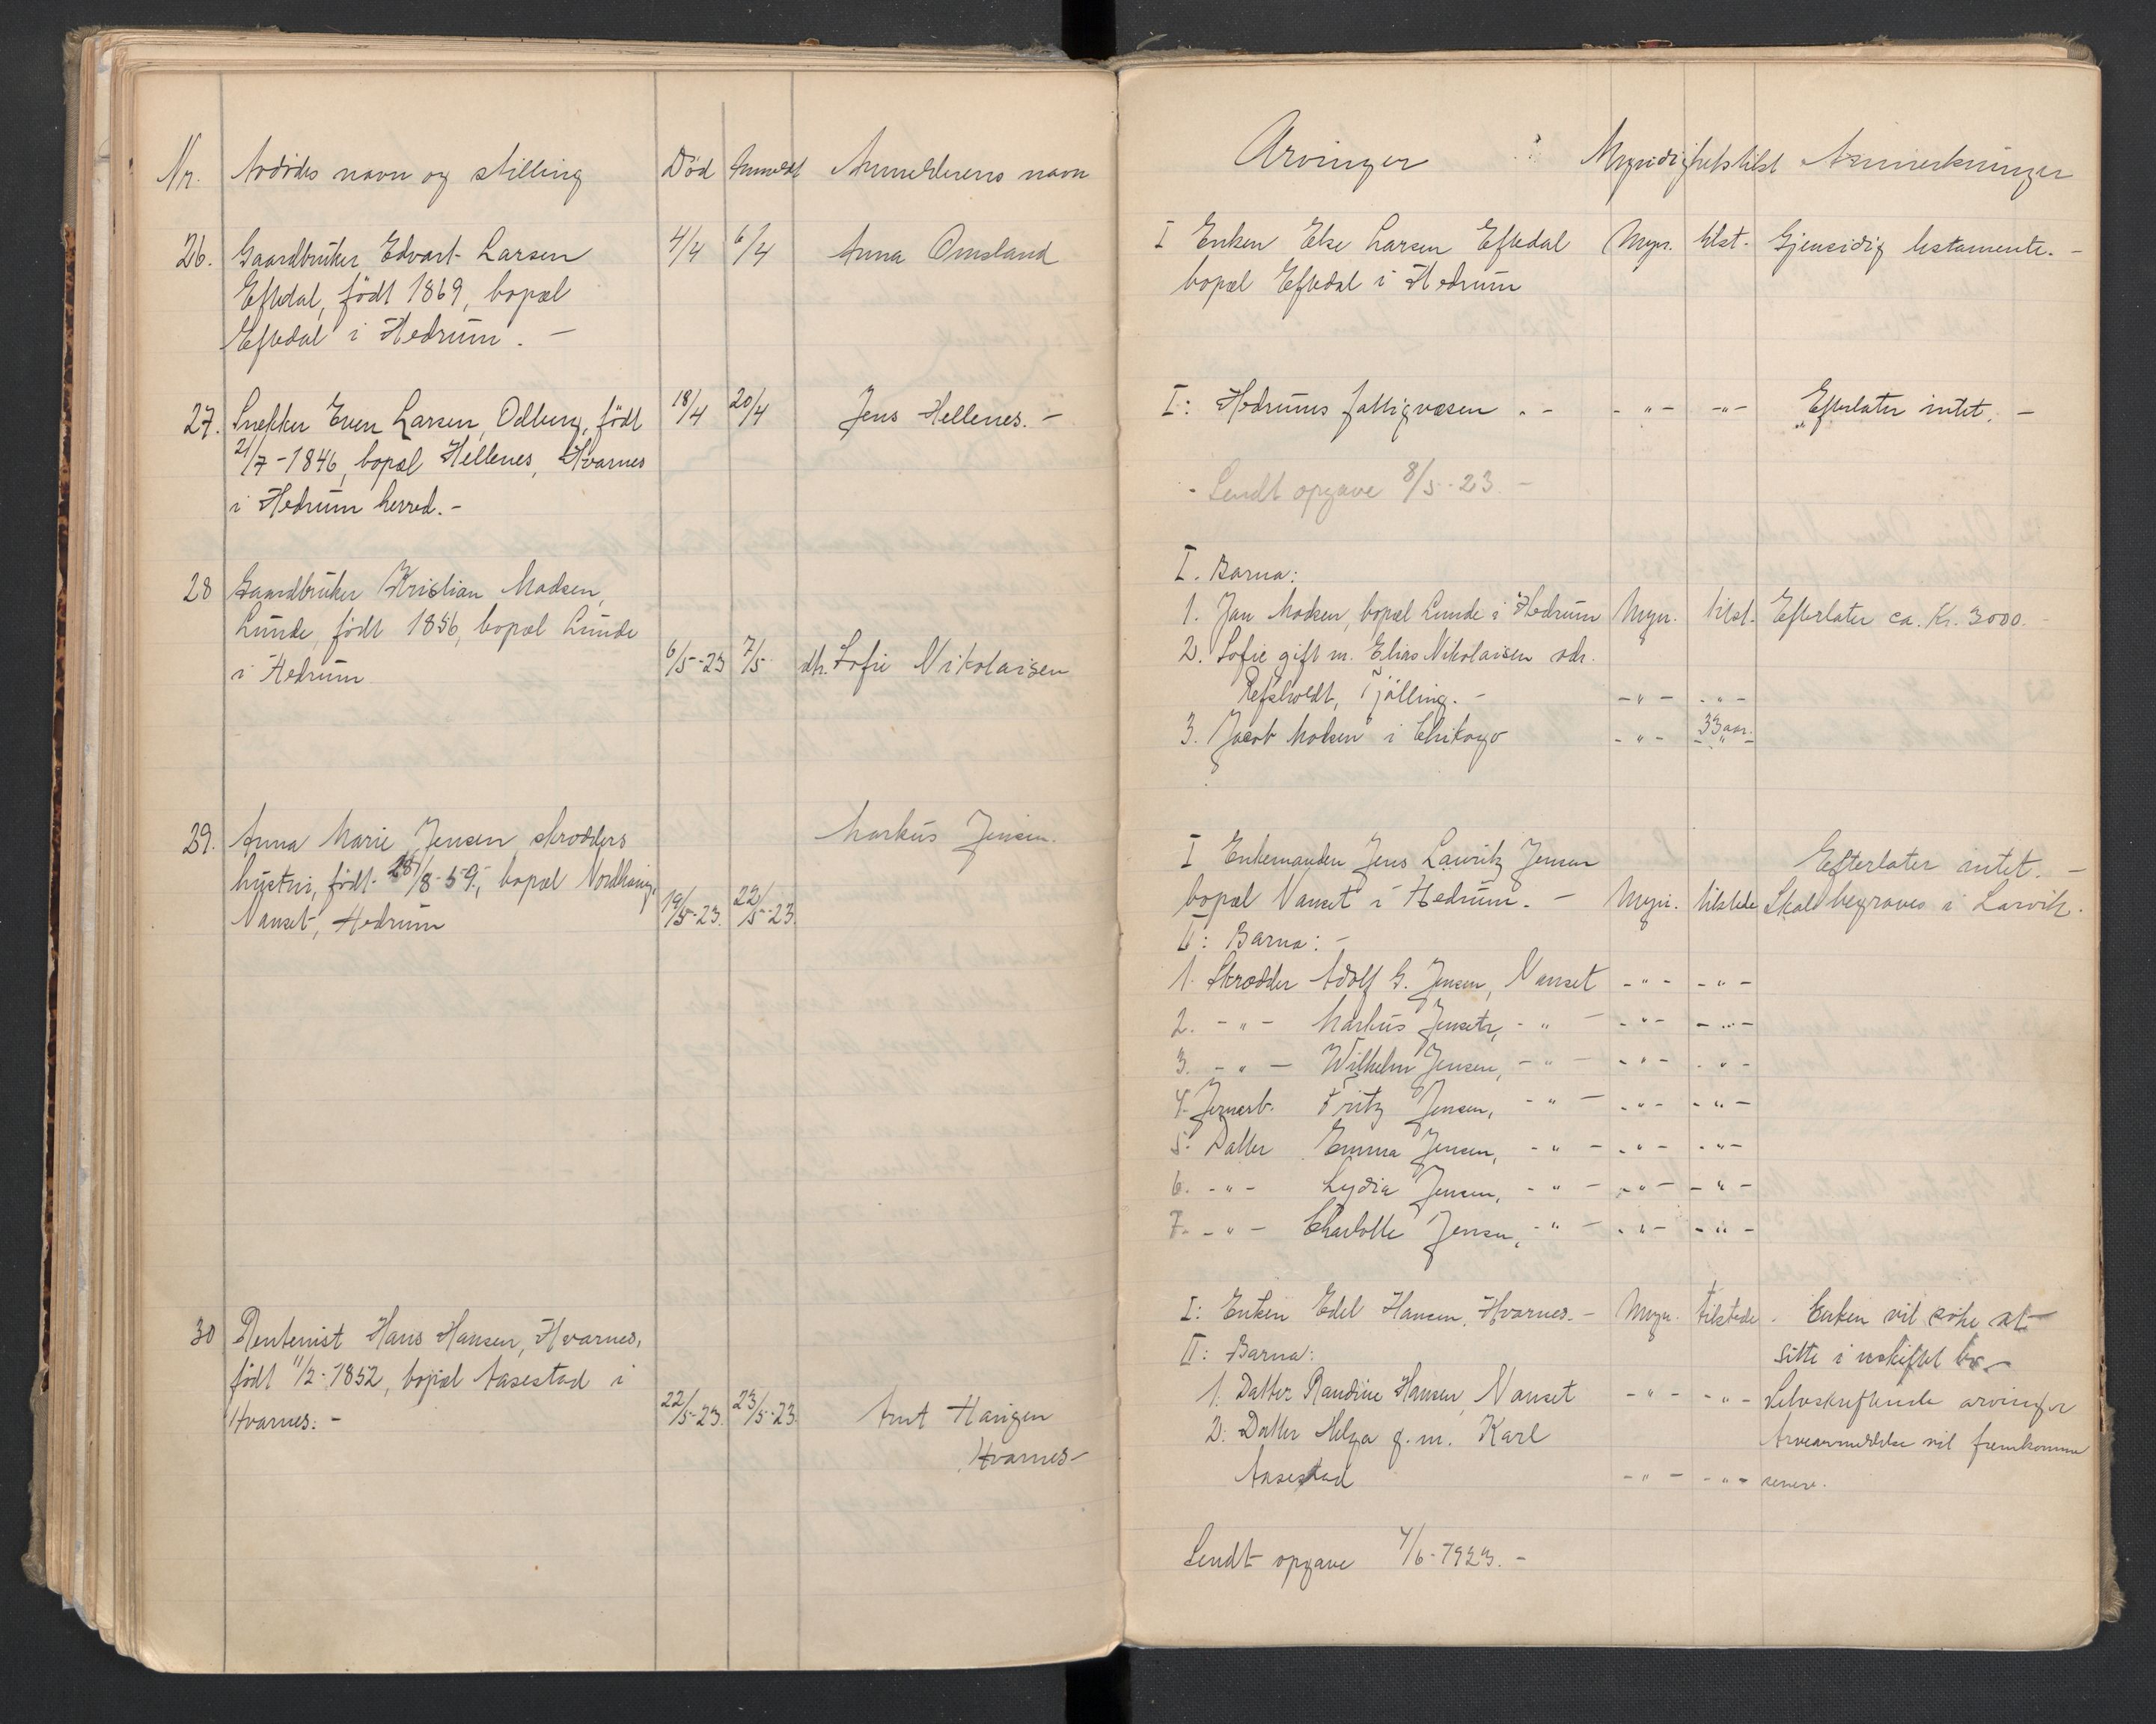 Nr. Avdødes navn og stilling Död Anmeldt Anmelderens navn
26. Gaardbruker Edvart Larsen 4/4 6/4 Anna Omsland
Eftedal, födt 1869, bopæl
Eftedal i Hedrum. -
27. Snekker Even Larsen, Odberg, födt 18/4 20/4 Jens Hellenes. -
21/7-1846, bopæl Hellenes, Hvarnes
i Hedrum herred. -
28 Gaardbruker Kristian Madsen,
Lunde, födt 1856, bopæl Lunde
i Hedrum 6/5-23 7/5 dtr. Sofie Nikolaisen
29. Anna Marie Jensen skrædders Markus Jensen.
hustru, födt 28/8-59, bopæl
Nanset, Hedrum 19/5-23. 22/5-23.
30 Rentenist Hans Hansen, Hvarnes,
födt 11/2-1852, bopæl Aasestad i
Hvarnes. - 22/5-23. 23/5-23. Arnt Haugen
Hvarnes-
Arvinger Myndighet tilst Anmerkninger
I Enken Else Larsen Eftedal Myn. tilst. Gjensidig testamente. -
bopæl Eftedal i Hedrum
I: Hedrums fattigvæsen . - - " - - " - Efterlater intet. -
- Sendt opgave 8/5-23. -
I. Barna:
1. Jan Madsen, bopæl Lunde i Hedrum Myn. tilst. Efterlater ca. Kr. 3000. -
2. Sofie gift m. Elias Nikolaisen adr.
Refsholdt, Tjölling. - - " - - " -
3. Jacob Madsen i Chikago - " - 33 aar.
I Enkemanden Jens Lauritz Jensen Efterlater intet. -
bopæl Nanset i Hedrum. - Myn. tilstede Skal begraves i Larvik.
II: Barna: -
1. Skrædder Adolf G. Jensen, Nanset - " - - " -
2. - " - Markus Jensen, - " - - " - - " -
3. - " - Wilhelm Jensen, - " - - " - - " -
4. Jernarb. Fritz Jensen, - " - - " - - " -
5. Datter Emma Jensen, - " - - " - - " -
6. - " - Lydia Jensen, - " - - " - - " -
7. - " - Charlotte Jensen, - " - - " - - " -
I: Enken Edel Hansen, Hvarnes. - Myn. tilstede. Enken vil söke at
II: Barna: sitte i uskiftet bo -
1. Datter Randine Hansen, Nanset - " - - " - Selvskiftende arvinger
2. Datter Helga g. m. Karl Arveanmeldelse vil fremkomme
Aasestad - " - - " - senere.
Sendt opgave 4/6-1923. -